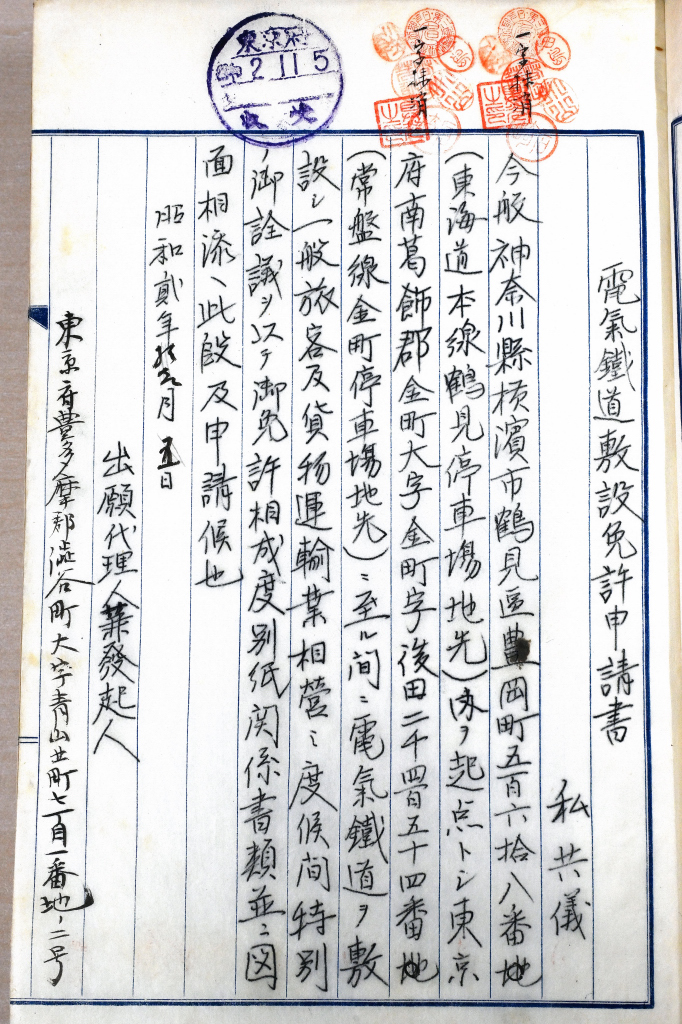 一字抹消
一字抹消
東京府
2 11 5
電氣鐵道敷設免許申請書
私共儀
今般神奈川縣横濱市鶴見區豊岡町五百六拾八番地
(東海道本線鶴見停車場地先)ヲ起点トシ東京
府南葛飾郡金町大字金町字後田二千四百五十四番地
(常盤線金町停車場地先)ニ至ル間ニ電氣鐵道ヲ敷
設シ一般旅客及貨物運輸業相営ミ度候間特別
ノ御詮議ヲ以テ御免許相成度別紙関係書類並ニ図
面相添ヘ此段及申請候也
昭和貳年 月五日
出願代理人兼發起人
東京府豊多摩郡澁谷町大字青山 町七百一番地ノ二号